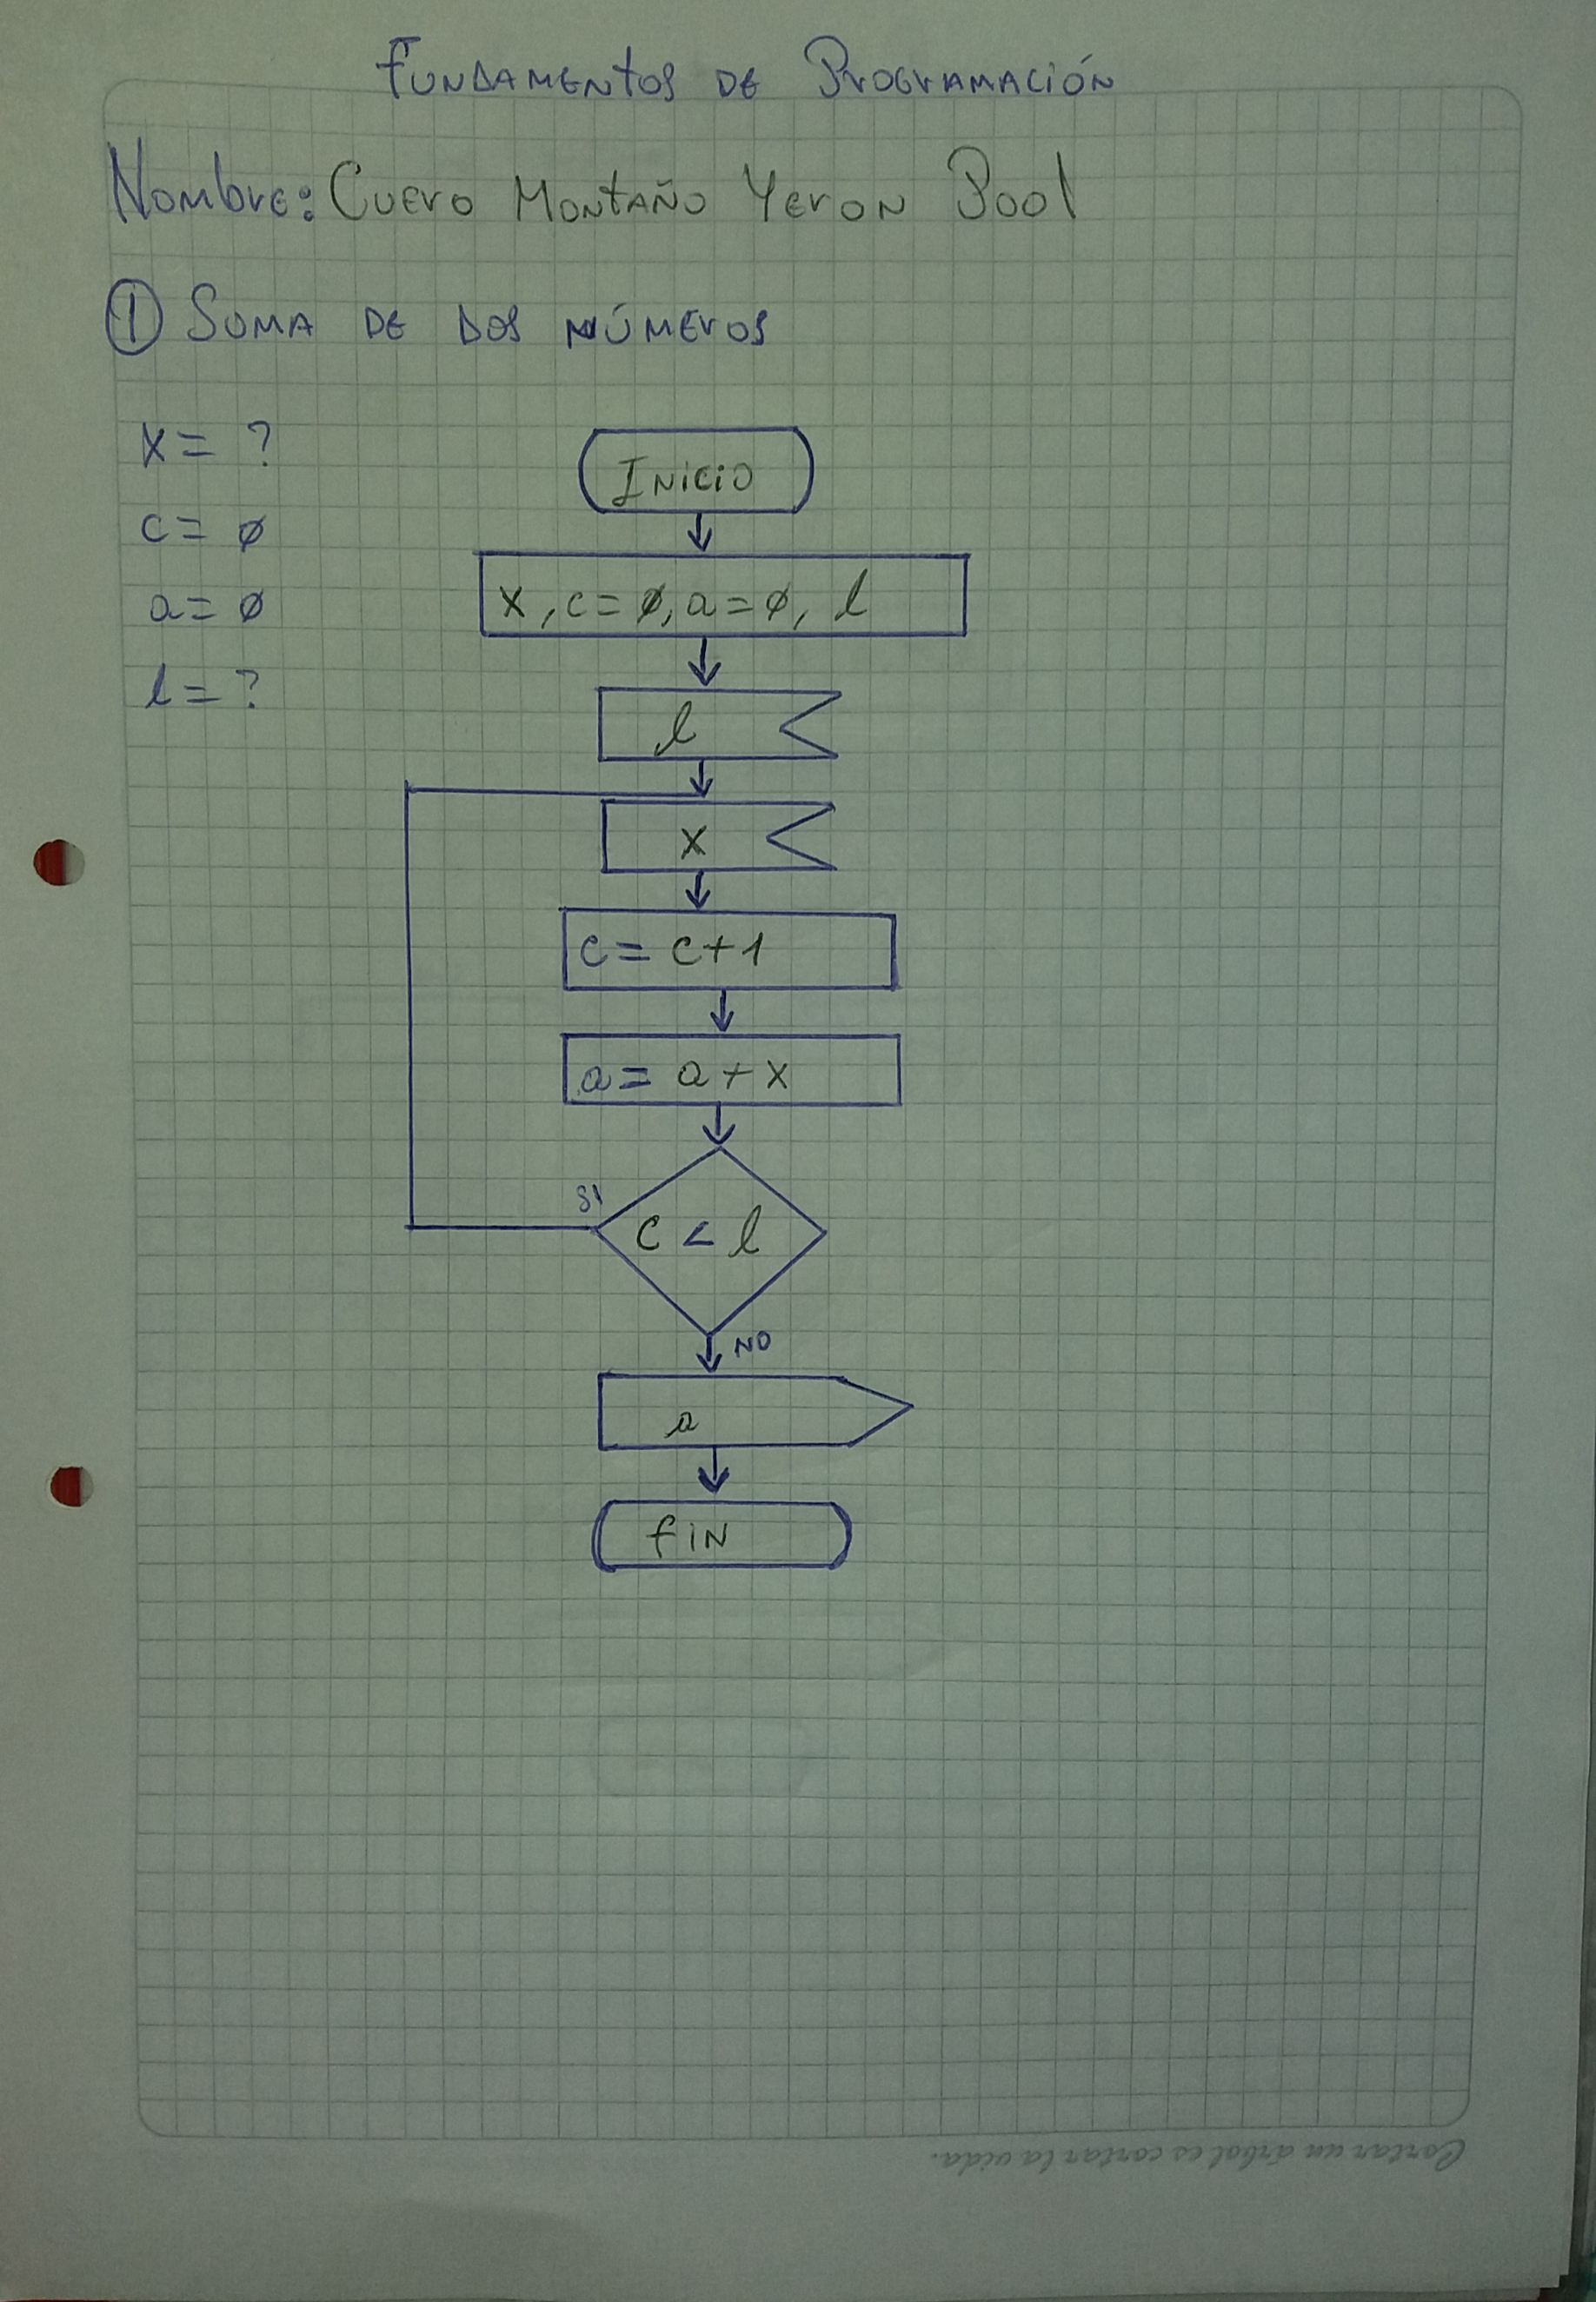 FUNDAMENTOS DE PROGRAMACIÓN
Nombre: CUERO MONTAÑO YERON POOL
① SUMA DE DOS NÚMEROS
x = ?
c = ø
a = ø
l = ?
INICIO
x, c = ø, a = ø, l
l
x
c = c + 1
a = a + x
SI
c < l
NO
a
FIN
Cortar un árbol es cortar la vida.